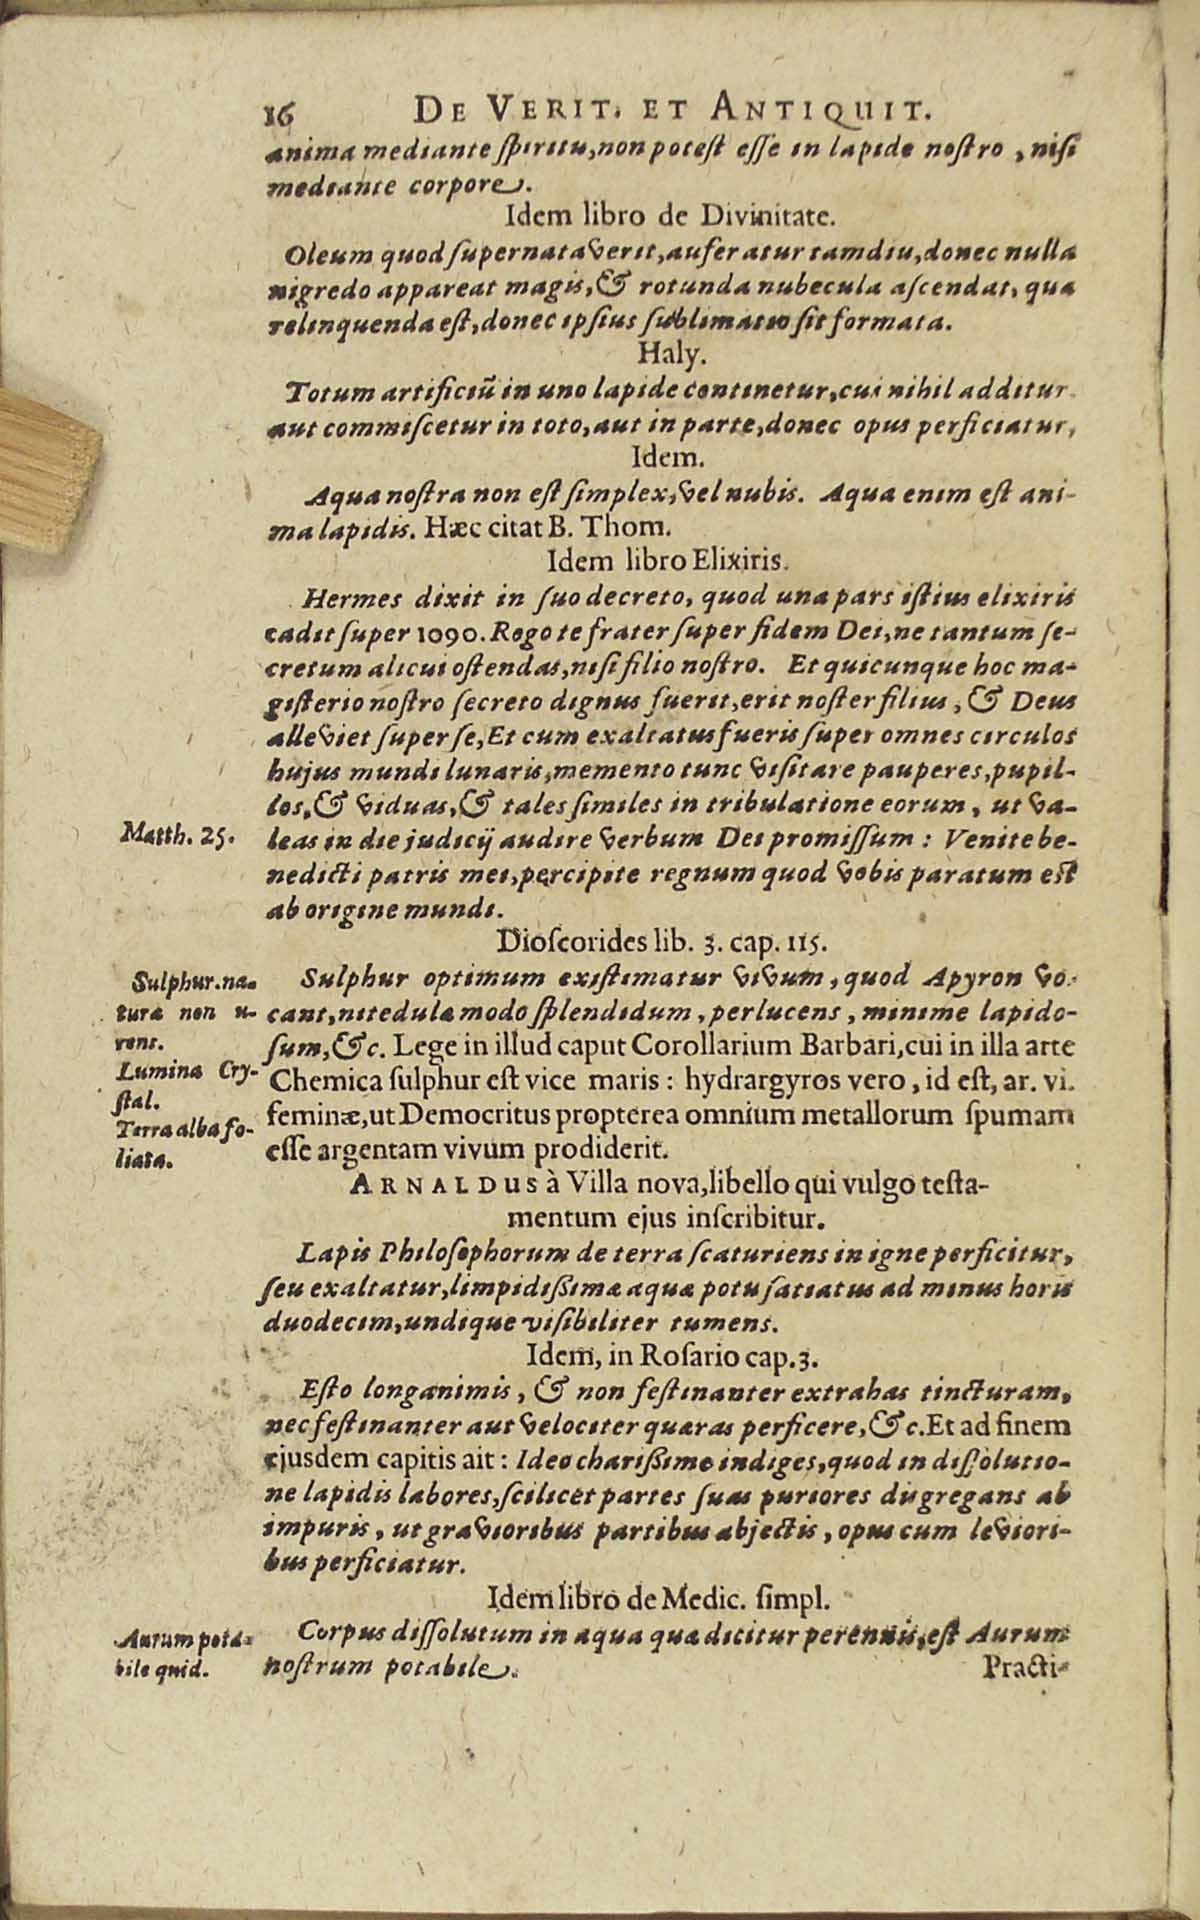 16 DE VERIT. ET ANTIQUIT.
anima mediante ſpiritu, non poteſt eſſe in lapide noſtro, niſi
mediante corpore.
Idem libro de Divinitate.
Oleum quod ſupernataverit, auferatur tamdiu, donec nulla
nigredo appareat magis, & rotunda nubecula aſcendat, quæ
relinquenda eſt, donec ipſius ſublimatio ſit formata.
Haly.
Totum artificiũ in uno lapide continetur, cui nihil additur
aut commiſcetur in toto, aut in parte, donec opus perficiatur,
Idem.
Aqua noſtra non eſt ſimplex, vel nubis. Aqua enim eſt ani-
ma lapidis. Hæc citat B. Thom.
Idem libro Elixiris.
Hermes dixit in ſuo decreto, quod una pars iſtius elixiris
cadit ſuper 1090. Rogo te frater ſuper fidem Dei, ne tantum ſe-
cretum alicui oſtendas, niſi filio noſtro. Et quicunque hoc ma-
giſterio noſtro ſecreto dignus fuerit, erit noſter filius, & Deus
alleviet ſuper ſe, Et cum exaltatus fueris ſuper omnes circulos
hujus mundi lunaris, memento tunc viſitare pauperes, pupil-
los, & viduas, & tales ſimiles in tribulatione eorum, ut va-
Matth. 25.
leas in die judicij audire verbum Dei promiſſum: Venite be-
nedicti patris mei, percipite regnum quod vobis paratum eſt
ab origine mundi.
Dioſcorides lib. 3. cap. 115.
Sulphur. na-
turæ non u-
rens.
Lumina Cry-
ſtal.
Terra alba fo-
liata.
Sulphur optimum exiſtimatur vivum, quod Apyron vo-
cant, nitedulæ modo ſplendidum, perlucens, minime lapido-
ſum, &c. Lege in illud caput Corollarium Barbari, cui in illa arte
Chemica ſulphur eſt vice maris: hydrargyros vero, id eſt, ar. vi.
feminæ, ut Democritus propterea omnium metallorum ſpumam
eſſe argentam vivum prodiderit.
ARNALDUS à Villa nova, libello qui vulgo teſta-
mentum ejus inſcribitur.
Lapis Philoſophorum de terra ſcaturiens in igne perficitur,
ſeu exaltatur, limpidiſſimæ aquæ potu ſatiatus ad minus horis
duodecim, undique viſibiliter tumens.
Idem, in Roſario cap. 3.
Eſto longanimis, & non feſtinanter extrahas tincturam,
nec feſtinanter aut velociter quæras perficere, &c. Et ad finem
ejusdem capitis ait: Ideo chariſſime indiges, quod in diſſolutio-
ne lapidis labores, ſcilicet partes ſuas puriores diſgregans ab
impuris, ut gravioribus partibus abjectis, opus cum leviori-
bus perficiatur.
Idem libro de Medic. ſimpl.
Aurum pota-
bile quid.
Corpus diſſolutum in aqua quæ dicitur perennis, eſt Aurum
noſtrum potabile.
Practi-